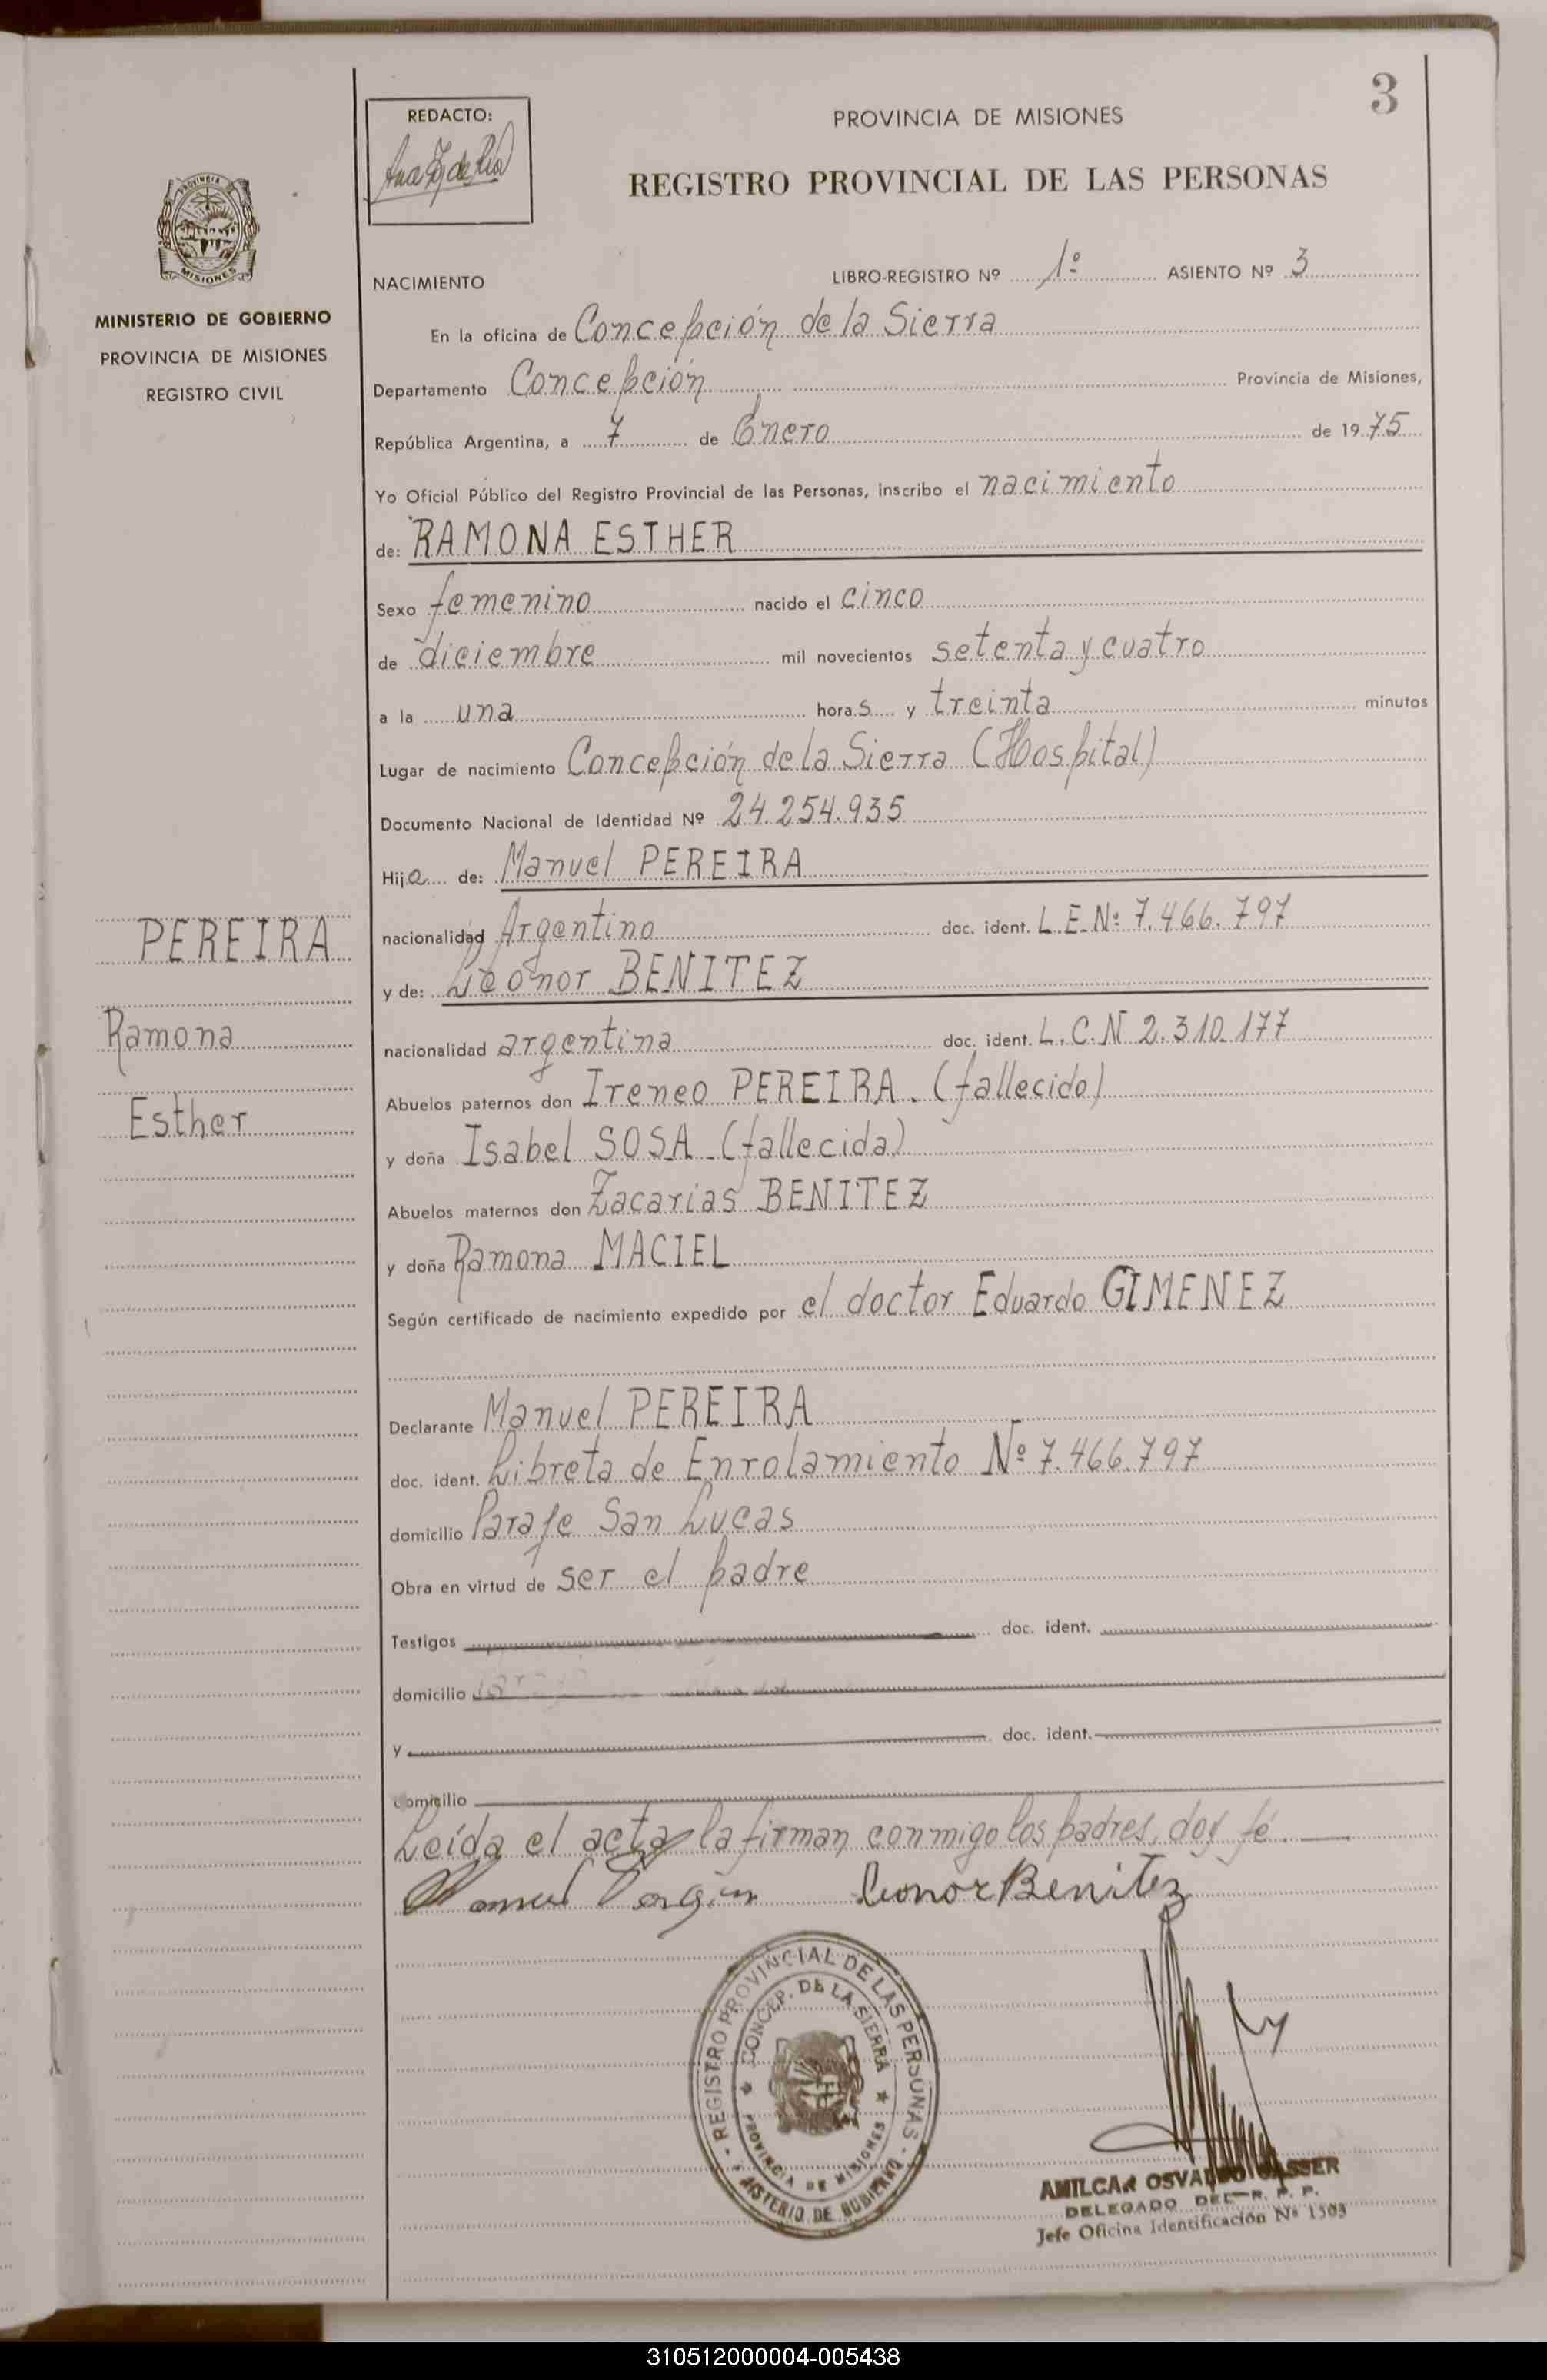 3
REDACTO:
PROVINCIA DE MISIONES
REGISTRO PROVINCIAL DE LAS PERSONAS
PROVINCIA
MISIONES
MINISTERIO DE GOBIERNO
PROVINCIA DE MISIONES
REGISTRO CIVIL
NACIMIENTO LIBRO-REGISTRO Nº 1º ASIENTO Nº 3
En la oficina de Concepción de la Sierra
Departamento Concepción Provincia de Misiones,
República Argentina, a 7 de Enero de 1975
Yo Oficial Público del Registro Provincial de las Personas, inscribo el nacimiento
de: RAMONA ESTHER
Sexo femenino nacido el cinco
de diciembre mil novecientos setenta y cuatro
a la una horas y treinta minutos
Lugar de nacimiento Concepción de la Sierra (Hospital)
Documento Nacional de Identidad Nº 24.254.935
Hija de: Manuel PEREIRA
nacionalidad Argentino doc. ident. L.E.Nº 7.466.797
y de: Leonor BENITEZ
nacionalidad argentina doc. ident. L.C.N 2.310.177
Abuelos paternos don Ireneo PEREIRA. (fallecido)
y doña Isabel SOSA (fallecida)
Abuelos maternos don Zacarias BENITEZ
y doña Ramona MACIEL
Según certificado de nacimiento expedido por el doctor Eduardo GIMENEZ
Declarante Manuel PEREIRA
doc. ident. Libreta de Enrolamiento Nº 7.466.797
domicilio Paraje San Lucas
Obra en virtud de ser el padre
Testigos doc. ident.
domicilio
y doc. ident.
domicilio
Leída el acta la firman conmigo los padres, doy fé.
Leonor Benitez
PEREIRA
Ramona
Esther
REGISTRO PROVINCIAL DE LAS PERSONAS
CONCEP. DE LA SIERRA
PROVINCIA DE MISIONES
MISTERIO DE GOBIERNO
AMILCAR OSVALDO GASSER
DELEGADO DEL R. P. P.
Jefe Oficina Identificación Nº 1503
310512000004-005438